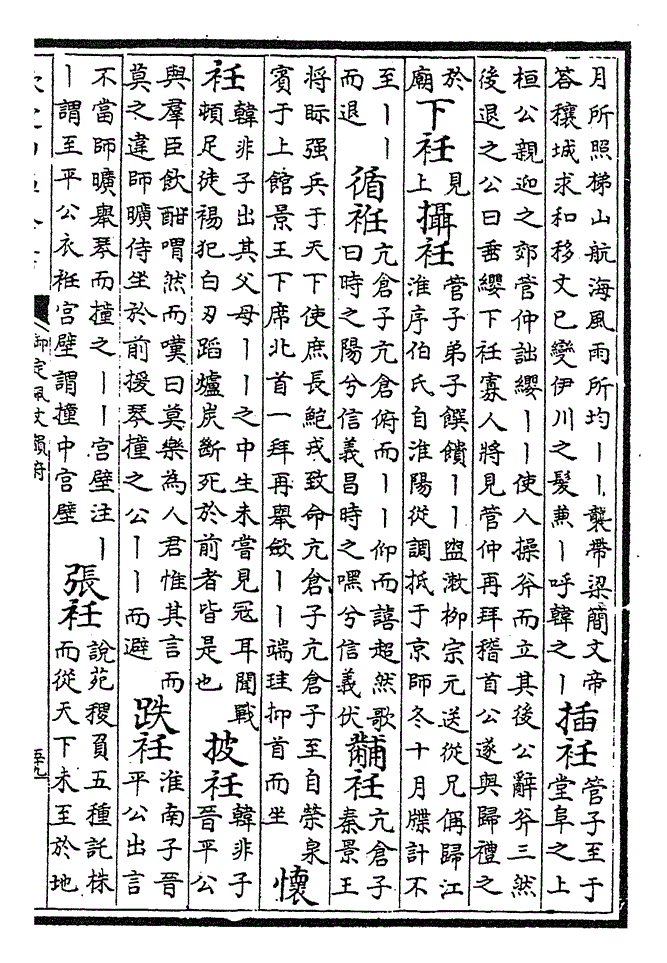 月所照梯山航海風雨所均丨丨襲帶梁簡文帝
荅穰城求和移文已變伊川之髮兼丨呼韓之丨
插衽
管子至于
堂阜之上
桓公親迎之郊管仲詘纓丨丨使人操斧而立其後公辭斧三然
後退之公曰垂纓下衽寡人將見管仲再拜稽首公遂與歸禮之
於
廟
下衽
見
上
攝衽
管子弟子饌饋丨丨盥漱柳宗元送從兄偁歸江
淮序伯氏自淮陽從調抵于京師冬十月牒計不
至丨丨
而退
循衽
亢倉子亢倉俯而丨丨仰而譆超然歌
曰時之陽兮信義昌時之嘿兮信義伏
黼衽
亢倉子
秦景王
將眎强兵于天下使庶長鮑戎致命亢倉子亢倉子至自榮泉
賓于上館景王下席北首一拜再舉斂丨丨端珪抑首而坐
懷
衽
韓非子出其父母丨丨之中生未嘗見冠耳聞戰
頓足徒裼犯白刃蹈爐炭斷死於前者皆是也
披衽
韓非子
晉平公
與羣臣飲酣喟然而嘆曰莫樂為人君惟其言而
莫之違師曠侍坐於前援琴撞之公丨丨而避
跌衽
淮南子晉
平公出言
不當師曠舉琴而撞之丨丨宮壁注丨
丨謂至平公衣衽宮壁謂撞中宮壁
張衽
說苑稷負五種託株
而從天下未至於地
御定佩文韻府